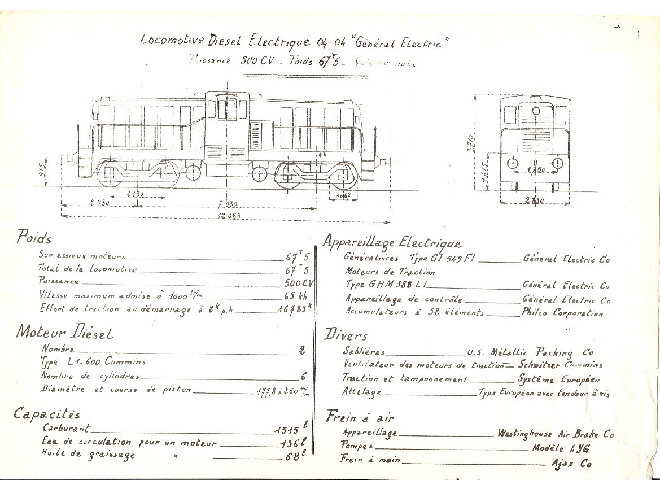 Locomotive Diesel Electrique 04-04 "Général Electric"
Puissance 500 CV - Poids 67T5 -
Poids
Sur essieux moteurs 67T5
Total de la locomotive 67T5
Puissance 500 CV
Vitesse maximum admise à 65 kh
Effort de traction au démarrage à
Moteur Diésel
Nombre 2
Type L1.600 Cummins
Nombre de cylindres 6
Diamètre et course de piston
Capacités
Carburant 1515 l
Eau de circulation pour un moteur 136 l
Huile de graissage " 68 l
Appareillage Electrique
Génératrices Type GT 549 F1 Général Electric Co
Moteurs de Traction
Type GHM 388 L1 Général Electric Co
Appareillage de contrôle Général Electric Co
Accumulateurs à 52 éléments Philco Corporation
Divers
Sablières U.S. Métallic Packing Co
Ventilateur des moteurs de traction Schwitzer Cummins
Traction et tamponnement Système Européen
Attelage Type Européen avec tendeur à vis
Frein à air
Appareillage Westinghouse Air Brake Co
Pompes Modèle
Frein à main Ajax Co